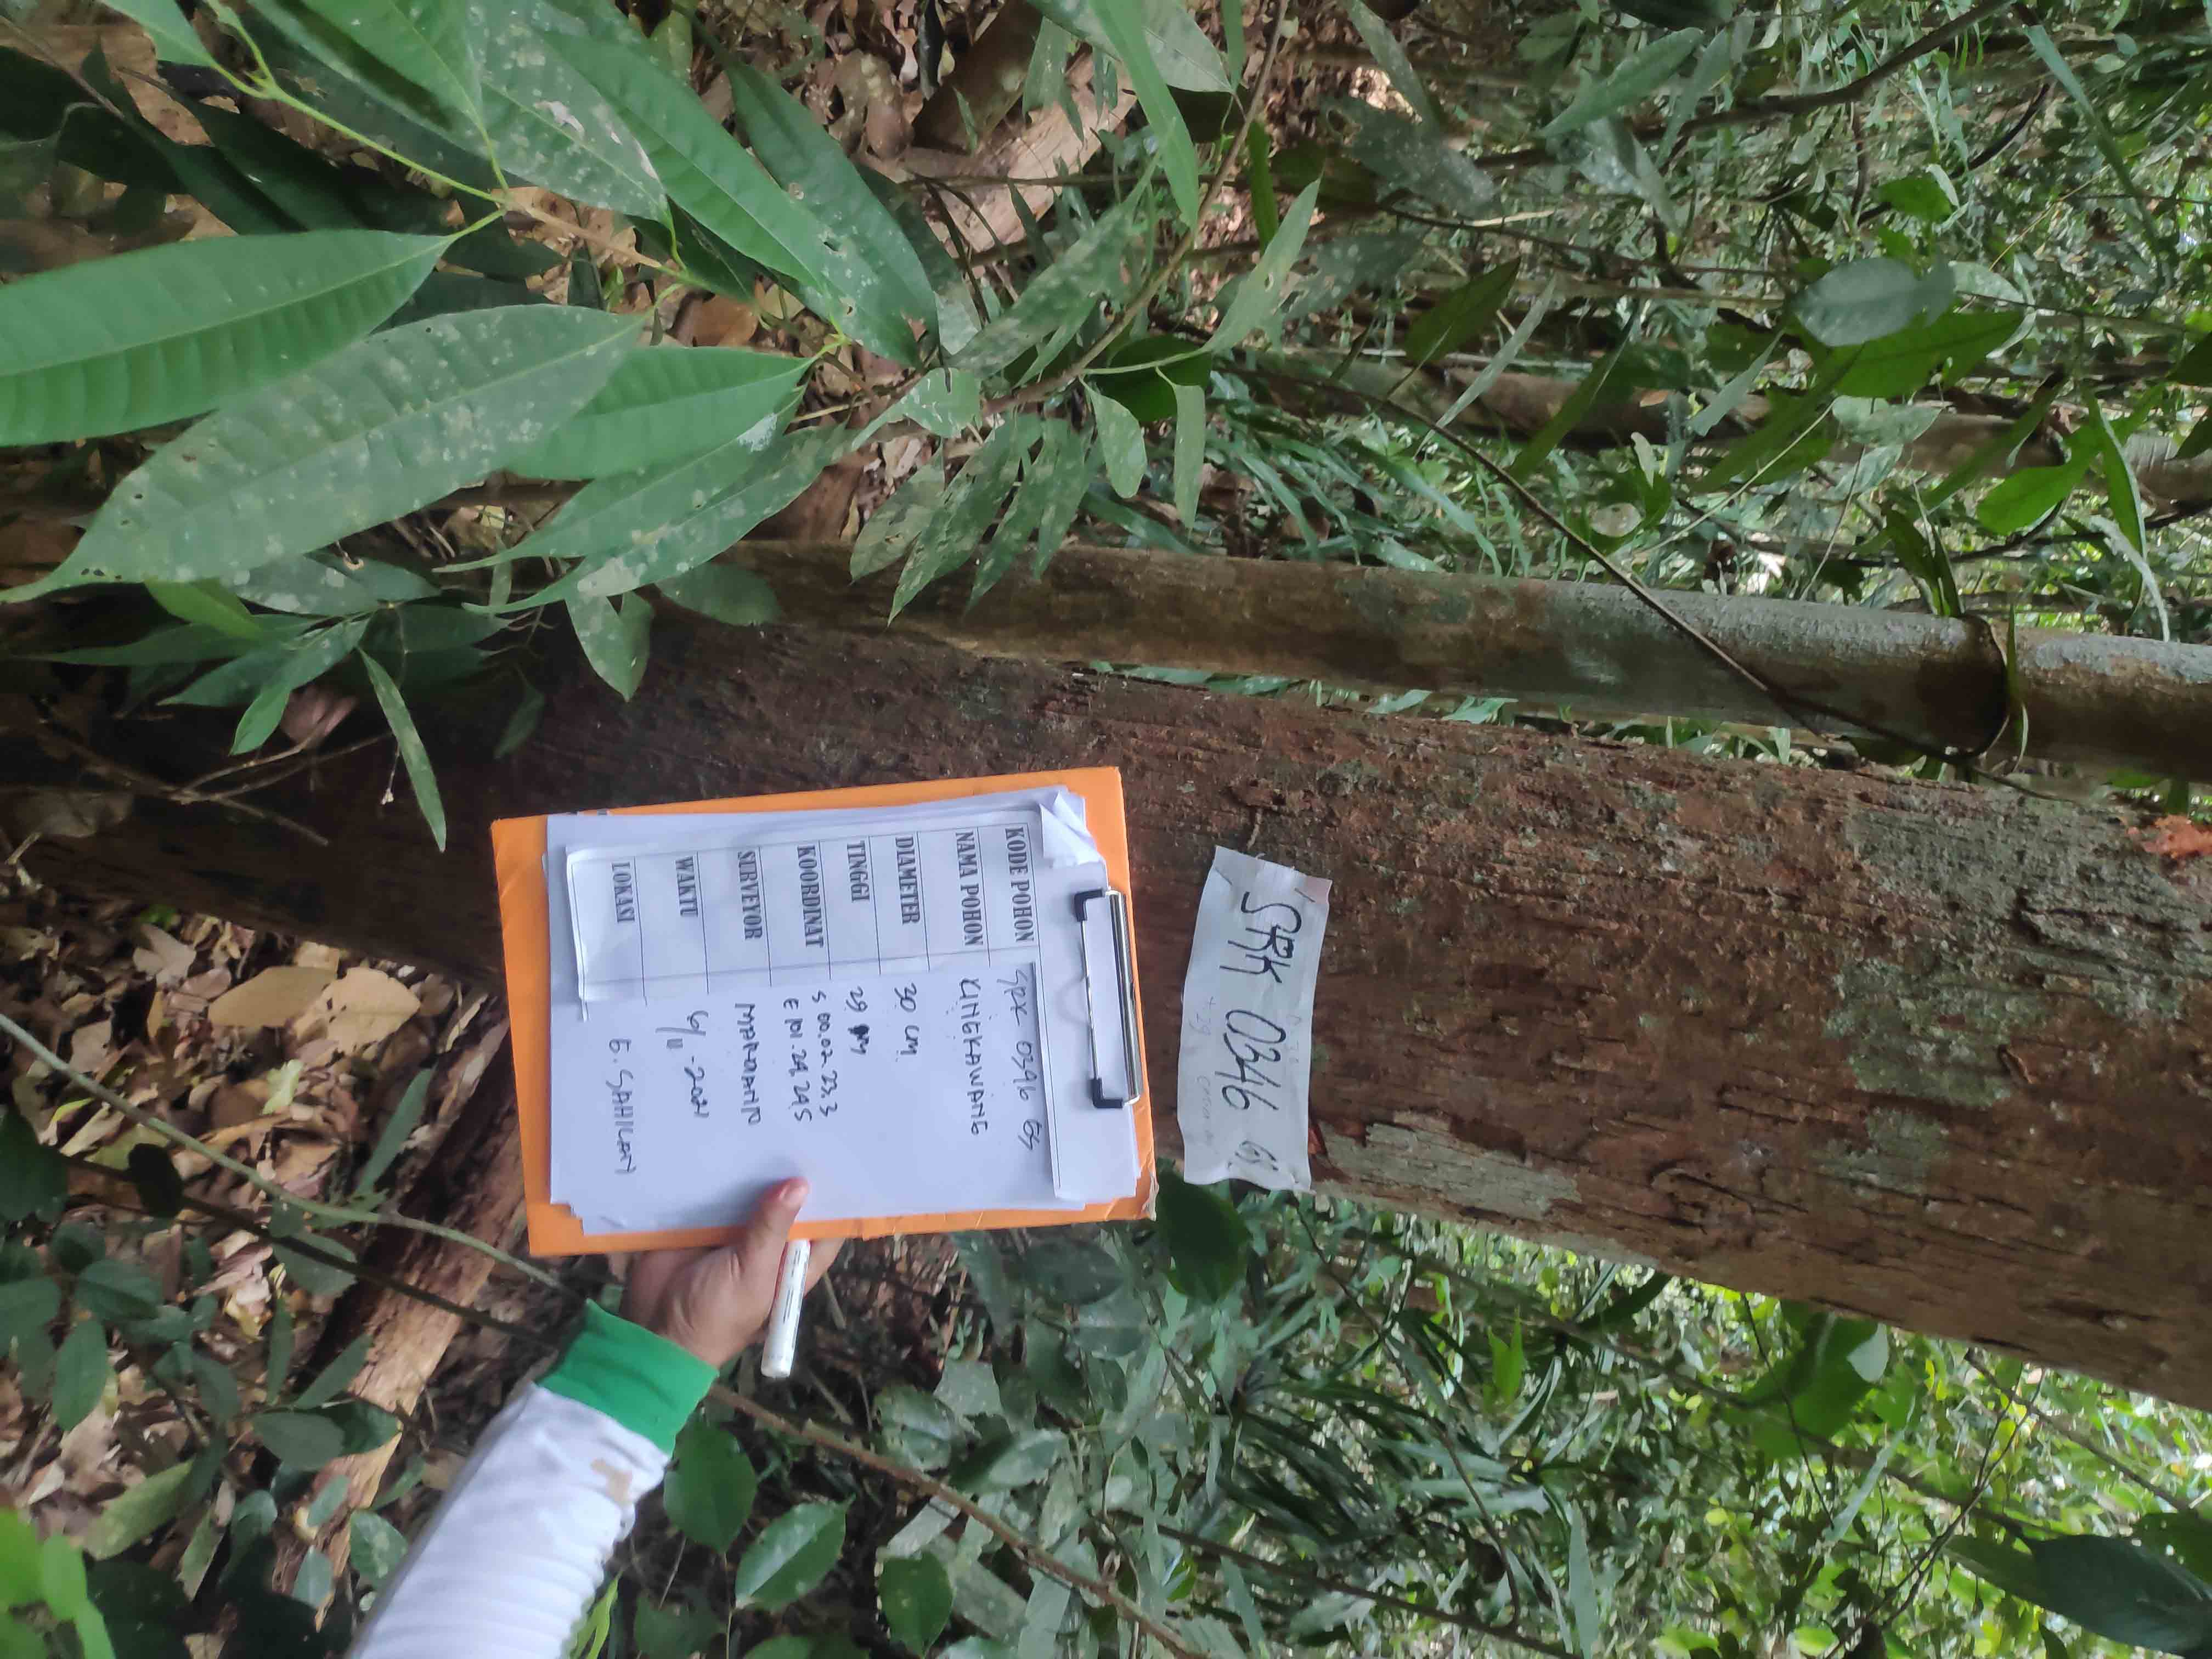 SRK 0346 GS
KODE POHON SRK 0346 GS
NAMA POHON KINGKAWANG
DIAMETER 30 CM
TINGGI 29 M
KOORDINAT S 00.02.23.3
E 101.24.24.5
SURVEYOR
WAKTU 6/11-2021
LOKASI G. SAHILAN